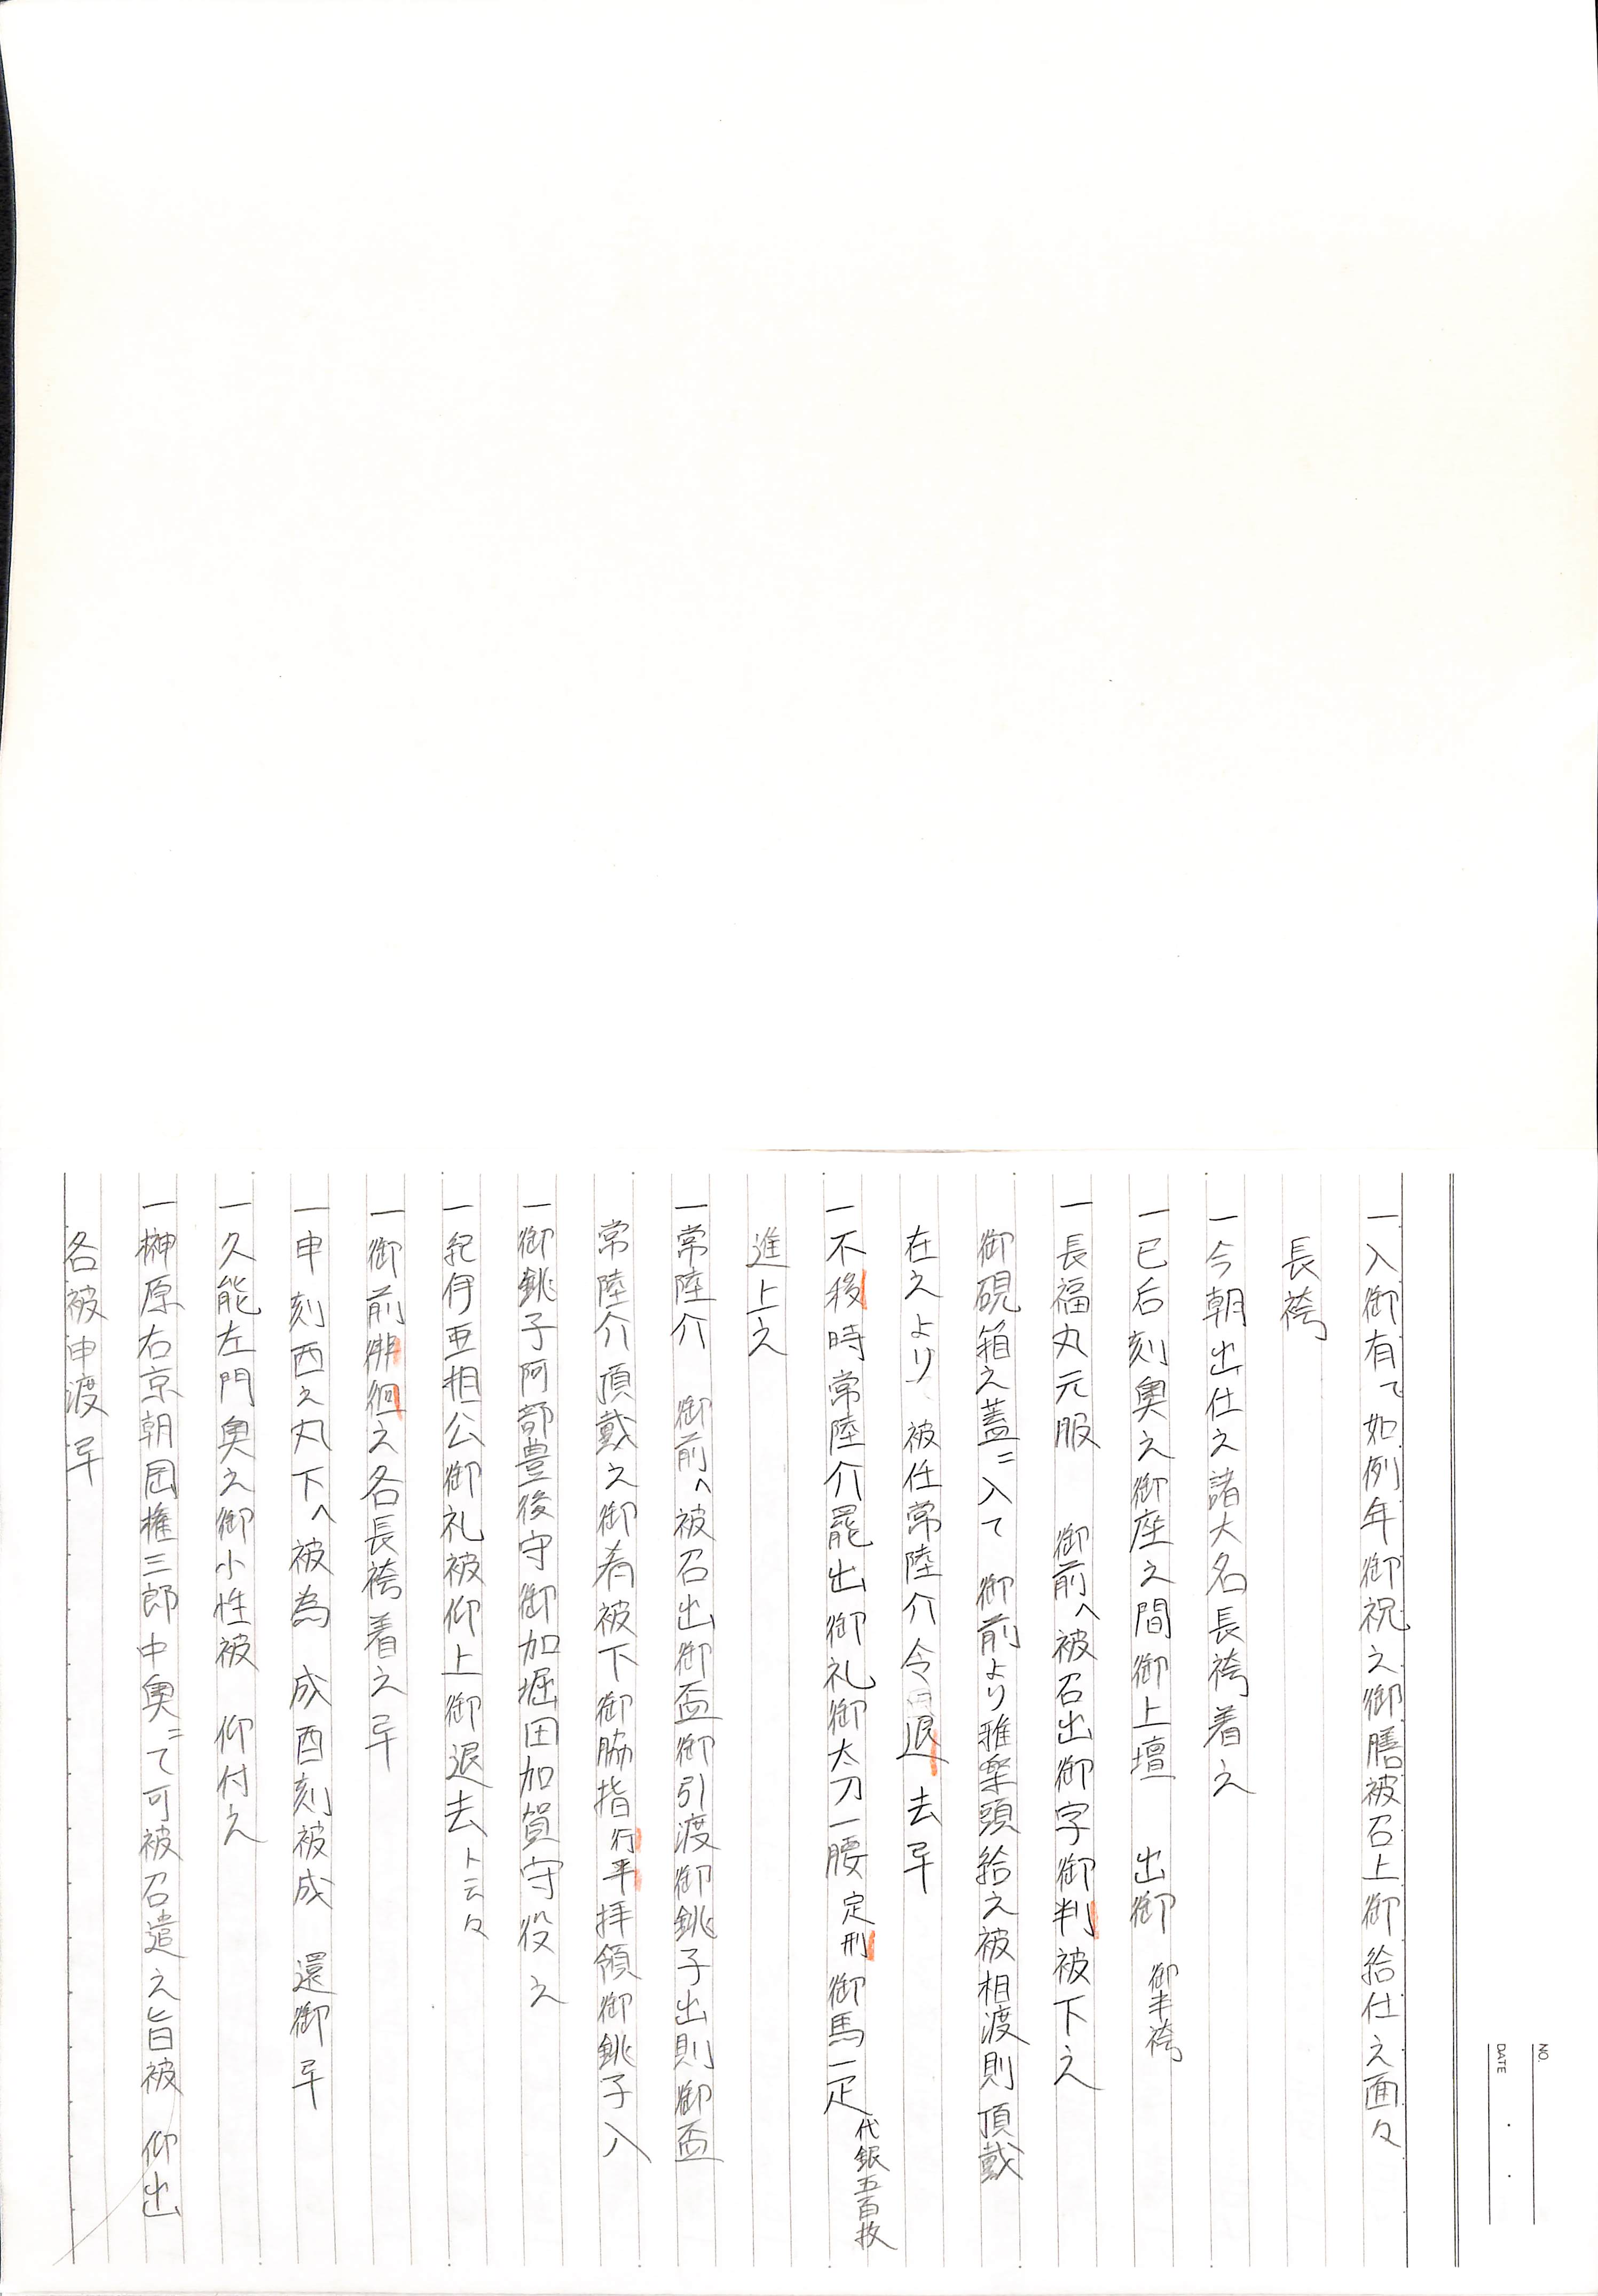 NO.
DATE ・ ・
一入御有て如例年御祝之御膳被召上御給仕之面々
長袴
一今朝出仕之諸大名長袴着之
一已后刻奥之御座之間御上壇 出御 御半袴
一長福丸元服 御前へ被召出御字御判被下之
御硯箱之蓋ニ入て 御前より雅楽頭給之被相渡則頂戴
在之より 被任常陸介令退去畢
一不移時常陸介罷出御礼御太刀一腰定刑御馬一疋代銀五百枚
進上之
一常陸介 御前へ被召出御盃御引渡御銚子出則御盃
常陸介頂戴之御肴被下御脇指行平拝領御銚子入
一御銚子阿部豊後守御加堀田加賀守役之
一紀伊亜相公御礼被仰上御退去ト云々
一御前徘徊之各長袴着之畢
一申刻西之丸下へ被為 成酉刻被成 還御畢
一久能左門奥之御小性被 仰付之
一榊原右京朝岡権三郎中奥ニて可被召遣之旨被 仰出
各被申渡畢